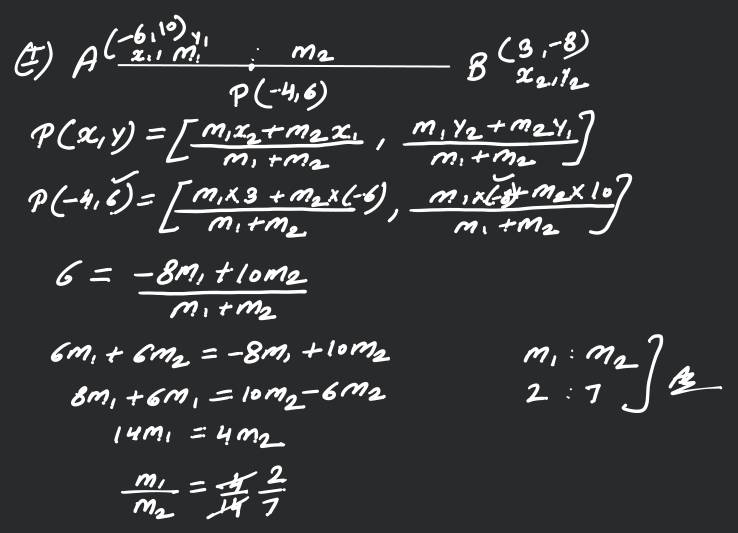 (I) A (-6,10) x₁, y₁ m₁ : m₂ B (3,-8) x₂,y₂
P(-4,6)
P(x,y) = [ (m₁x₂+m₂x₁)/(m₁+m₂) , (m₁y₂+m₂y₁)/(m₁+m₂) ]
P(-4,6) = [ (m₁×3+m₂×(-6))/(m₁+m₂) , (m₁×(-8)+m₂×10)/(m₁+m₂) ]
6 = (-8m₁+10m₂)/(m₁+m₂)
6m₁+6m₂ = -8m₁+10m₂
8m₁+6m₁ = 10m₂-6m₂
14m₁ = 4m₂
m₁/m₂ = 4/14 2/7
m₁ : m₂
2 : 7